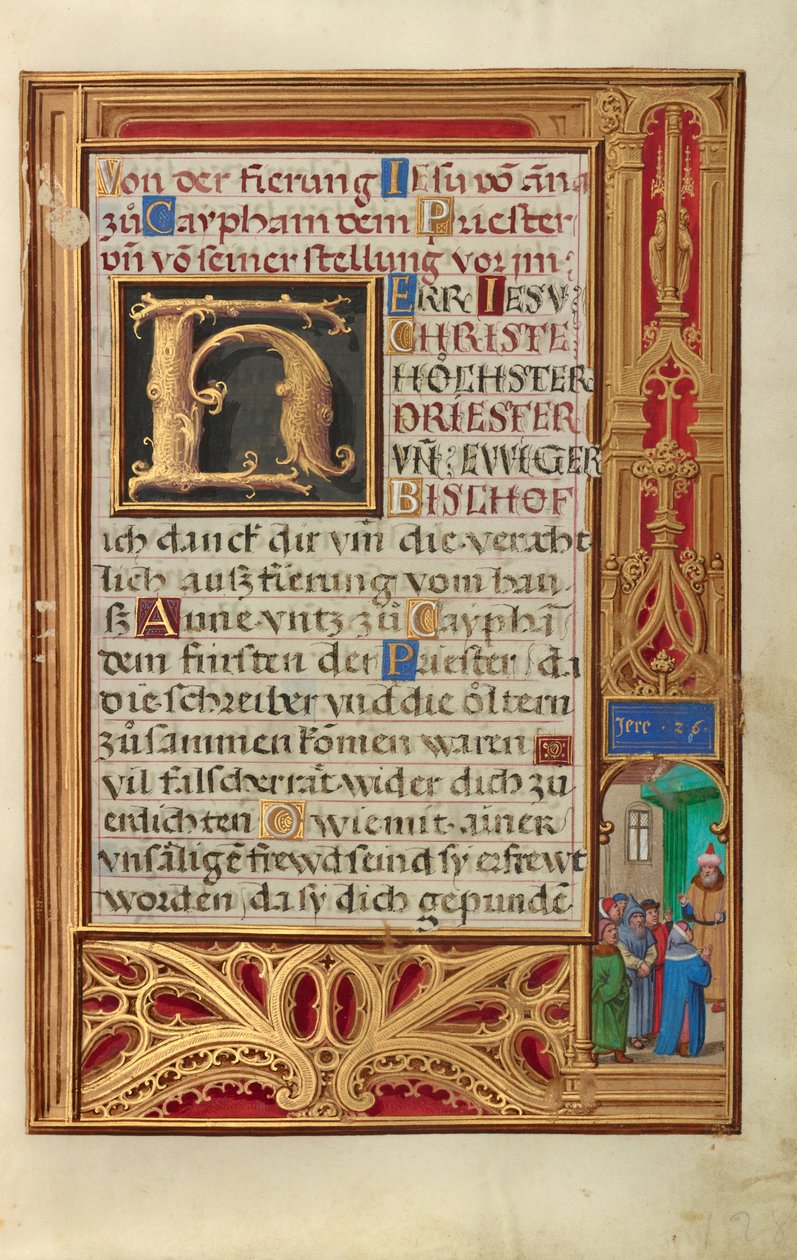 Von der fierung Iesu võ ãna
zů Caypham dem Priester
vñ võ seiner stellung vor im
HERR IESV
CHRISTE
HÖCHSTER
PRIESTER
VÑ EVVIGER
BISCHOF
ich danck dir vm̃ die veracht
lich ausz fierung vom hau
sz Anne vntz zů Cayphã
dem fürsten der Priester / da
die schreiber vnd die öltern
zůsammen kõmen waren
vil falscher rät wider dich zu
erdichten O wie mit ainer
vnsäligẽ frewd seind sy erfrewt
worden / da sy dich gepundẽ
Jere · 26 ·
128